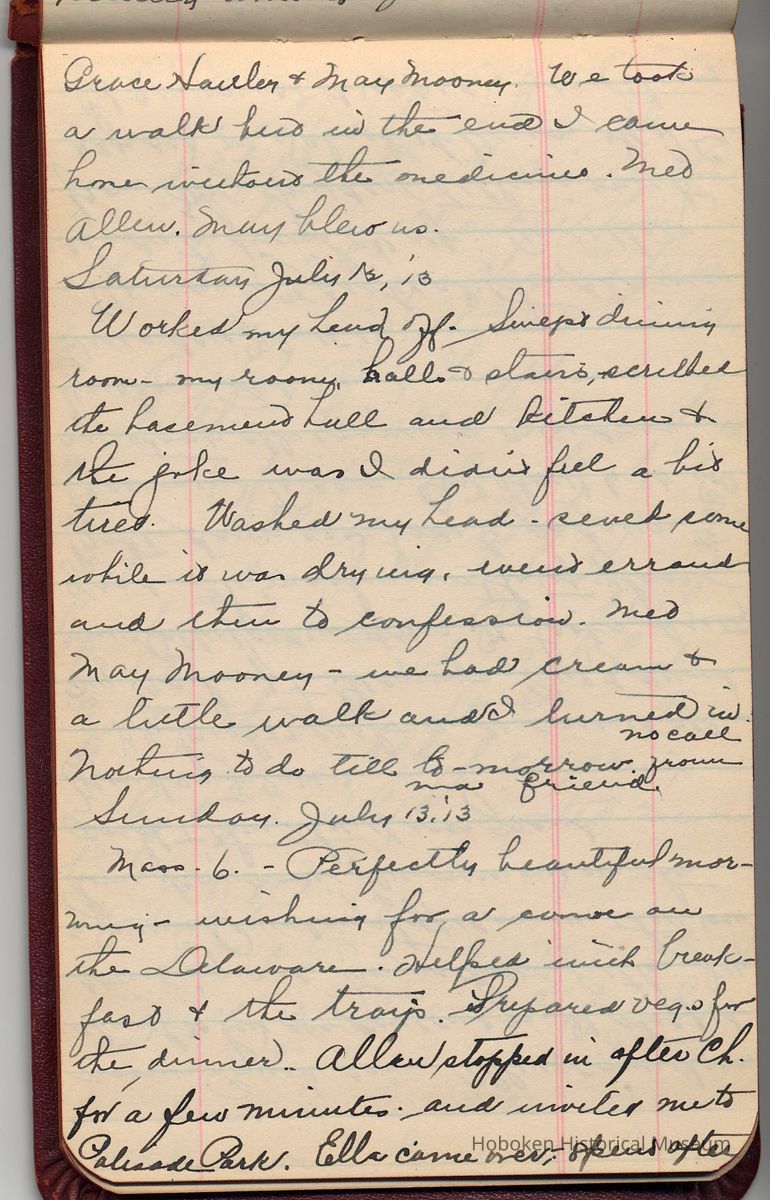 Grace Hauler & May Mooney. We took
a walk but in the end I came
home without the medicines. Met
Allen. May blew us.
Saturday July 12, '13
Worked my head off. Swept dining
room - my room, halls & stairs, scrubbed
the basement hall and kitchen &
the joke was I didn't feel a bit
tired. Washed my head - sewed some
while it was drying, went errand
and then to confession. Met
May Mooney - we had cream &
a little walk and I turned in.
Nothing to do till to-morrow. no call from
ma friend.
Sunday. July 13, '13
Mass. 6. - Perfectly beautiful mor-
ning - wishing for a canoe on
the Delaware. Helped with break-
fast & the trays. Prepared veg.s for
the dinner. Allen stopped in after Ch.
for a few minutes. and invited me to
Palisade Park. Ella came over - spent after
Hoboken Historical Museum